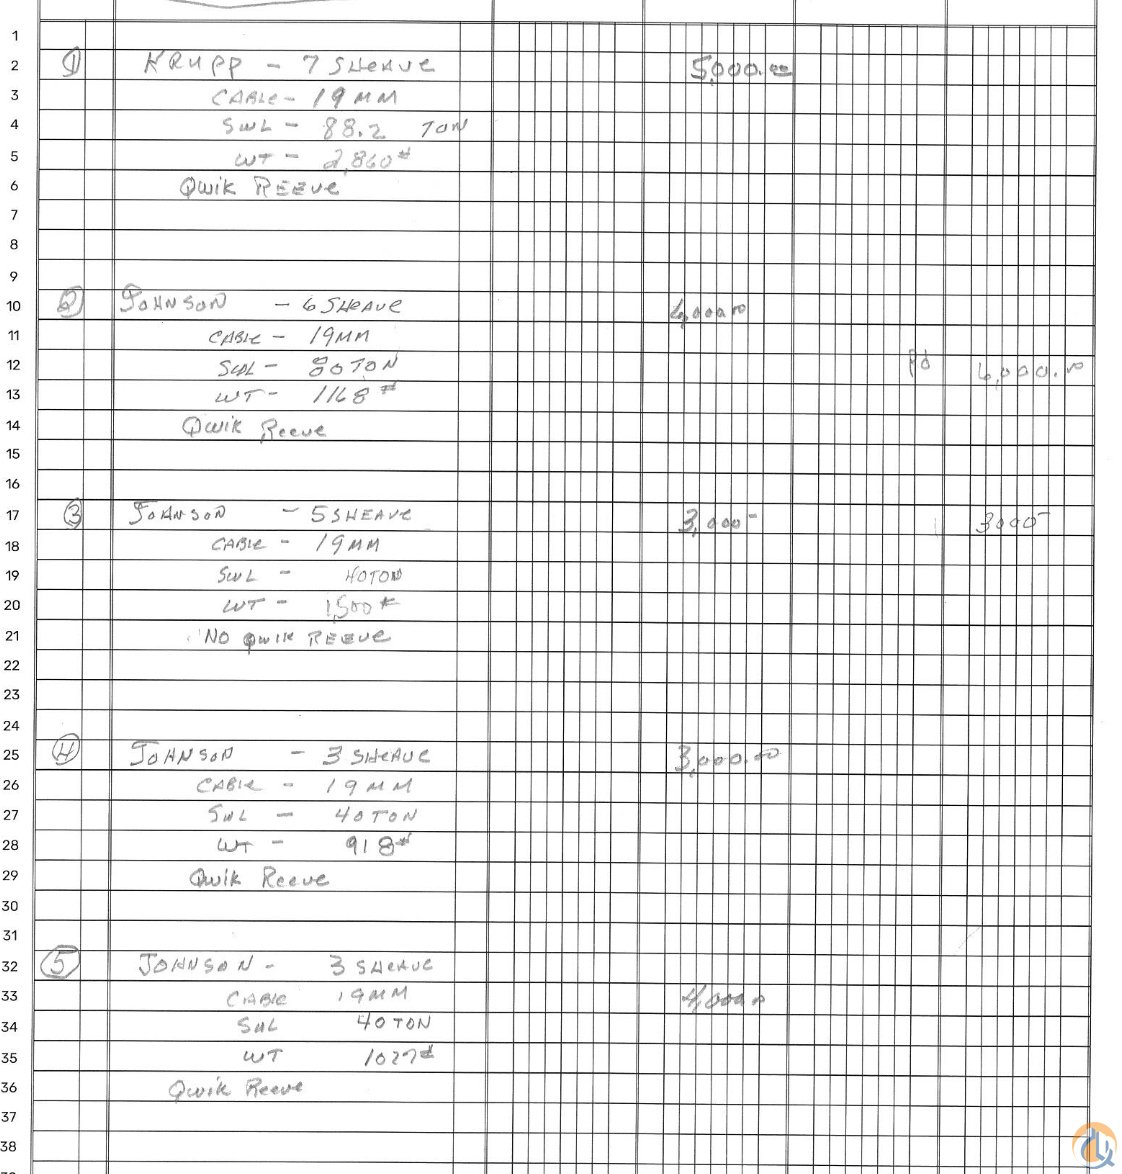 1
2 ① KRUPP - 7 SHEAVE 5,000.00
3 CABLE - 19MM
4 SWL - 88.2 TON
5 WT - 2,860#
6 Qwik REEVE
7
8
9
10 ② JOHNSON - 6 SHEAVE
11 CABLE - 19MM
12 SWL - 80 TON Pd
13 WT - 1168#
14 Qwik Reeve
15
16
17 ③ JOHNSON - 5 SHEAVE 3,000- 3000-
18 CABLE - 19MM
19 SWL - 40 TON
20 WT - 1,500#
21 NO QWIK REEVE
22
23
24
25 ④ JOHNSON - 3 SHEAVE 3,000.00
26 CABLE - 19MM
27 SWL - 40 TON
28 WT - 918#
29 Qwik Reeve
30
31
32 ⑤ JOHNSON - 3 SHEAVE
33 CABLE 19MM 4,000.00
34 SWL 40 TON
35 WT 1027#
36 Qwik Reeve
37
38